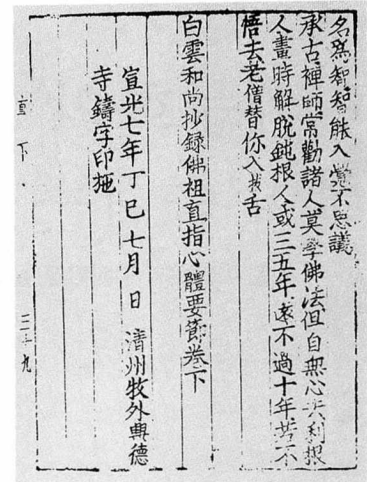 名爲智智能入覺不思議
承古禪師常勸諸人莫學佛法但自無心去利根
人畫時解脫鈍根人或三五年遠不過十年若不
悟去老僧替你入拔舌
白雲和尚抄録佛祖直指心體要節卷下
宣光七年丁巳七月 日 淸州牧外興德
寺鑄字印施
直下 三十九